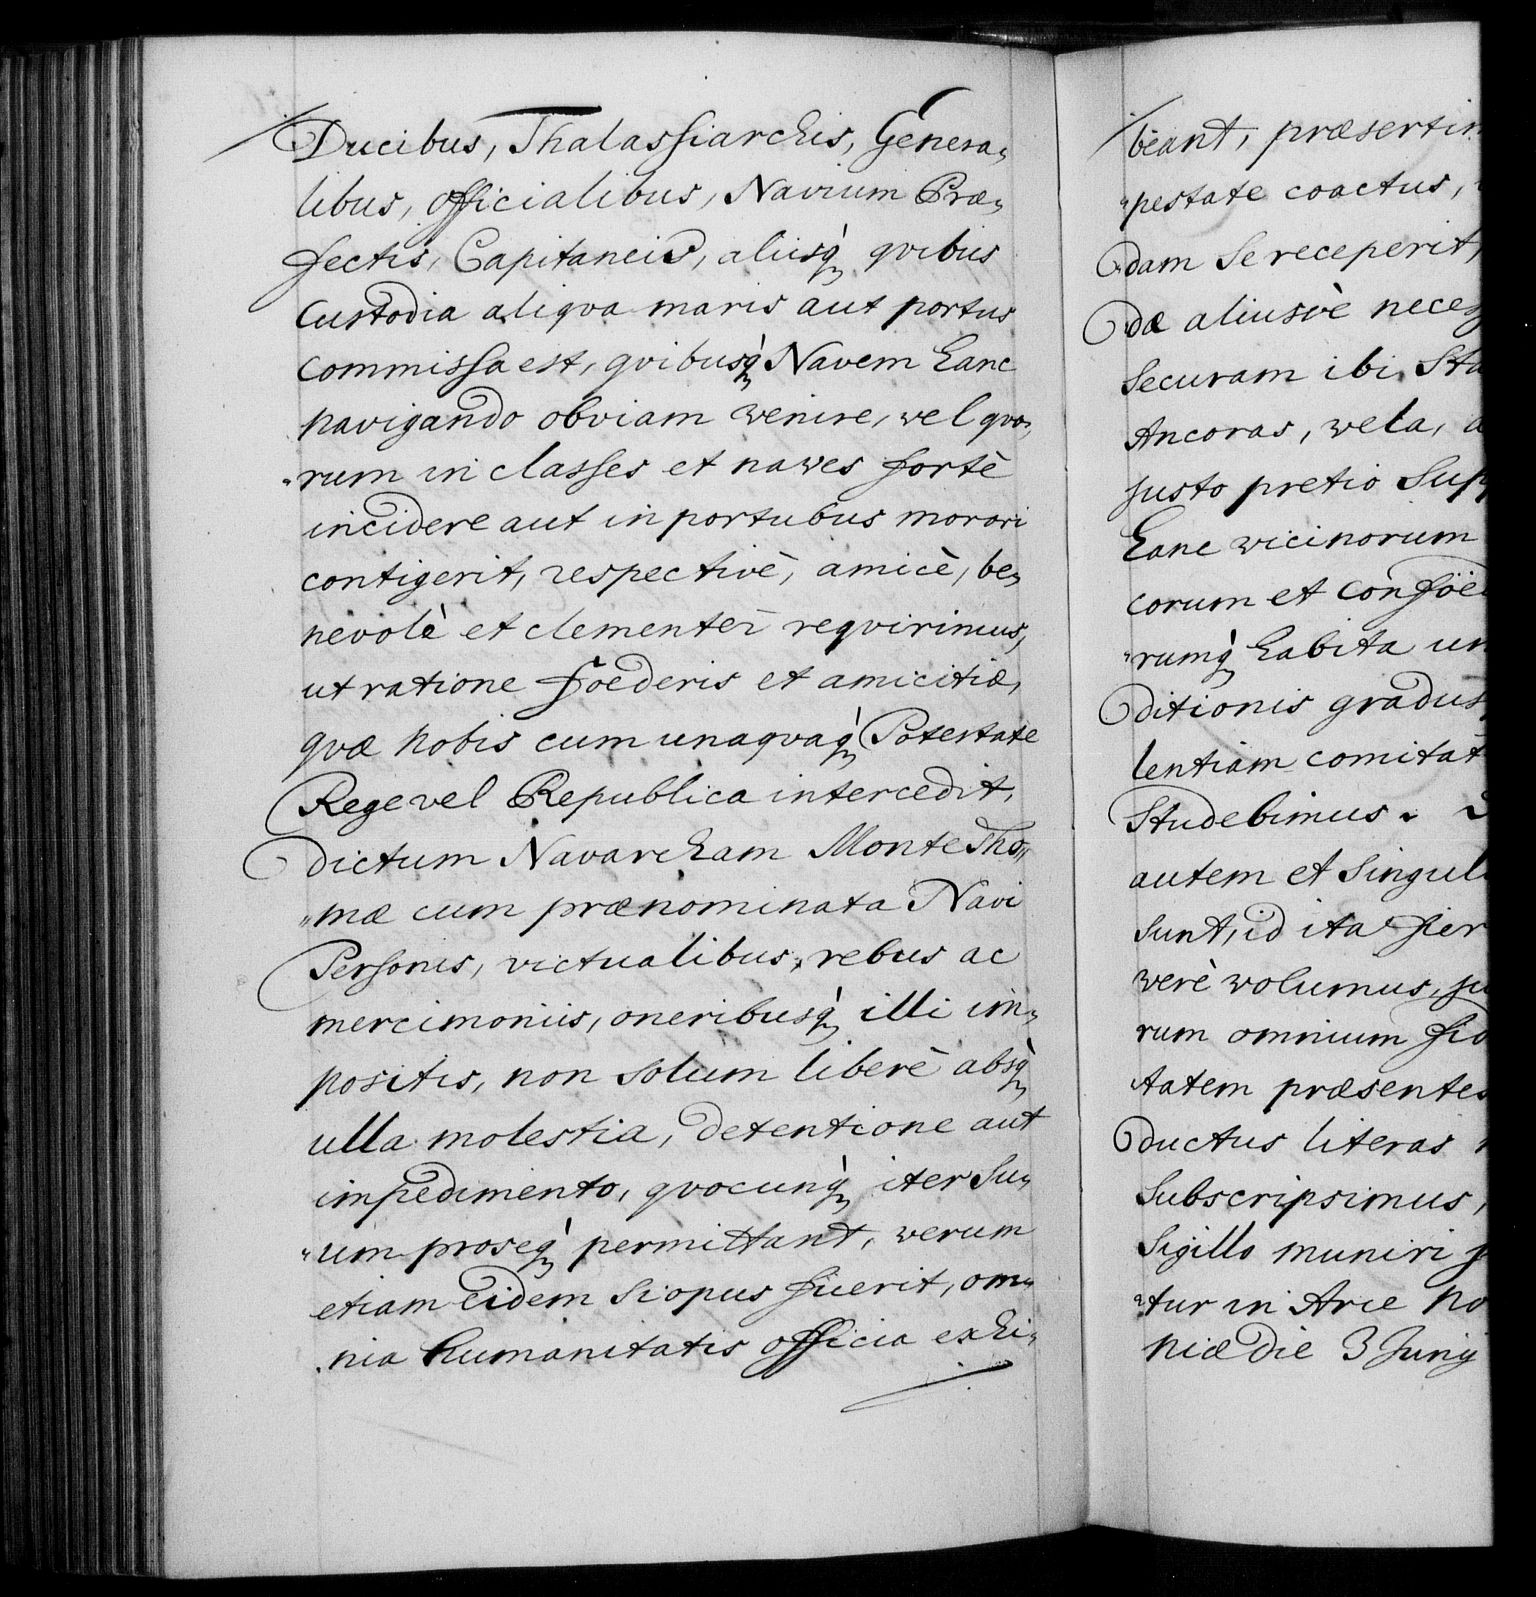 Ducibus, Thalassiarchis, Genera„
libus, officialibus, Navium Præ„
fectis, Capitaneis, aliisq̀ qvibus
Custodia aliqva maris aut portus
commissa est, qvibusq̀ Navem hanc
navigando obviam venire, vel qvo„
„rum in classes et naves fortè
incidere aut in portubus morari
contigerit, respectivè, amicè, be„
nevolè et clementèr reqvirimus,
ut ratione foederis et amicitiæ,
qvæ nobis cum unaqvaq̀ Potestate
Rege vel Republica intercedit,
dictum Navarcham Monte Tho„
„mæ cum prænominata Navi
Personis, victualibus, rebus ac
mercimoniis, oneribusq̀ illi im„
positis, non solum liberè absq̀
ulla molestia, detentione aut
impedimento, qvocunq̀ iter su„
„um proseq̀ permittant, verum
etiam eidem si opus fuerit, om„
„nia humanitatis officia exhi„
beant, præsertim
„pestate coactus,
dam se receperit,
dæ aliusvè neces
securam ibi Sta
Ancoras, vela, a
justo pretio Sup
hanc vicinorum
corum et confoed
„rumq̀ habita un
ditionis gradus,
lentiam comitat
studebimus.
autem et singul
sunt, id ita fier
verè volumus, ju
rum omnium fid
tatem præsentes
ductus literas
subscripsimus,
Sigillo muniri j
„tur in Arce
niæ die 3 Junij